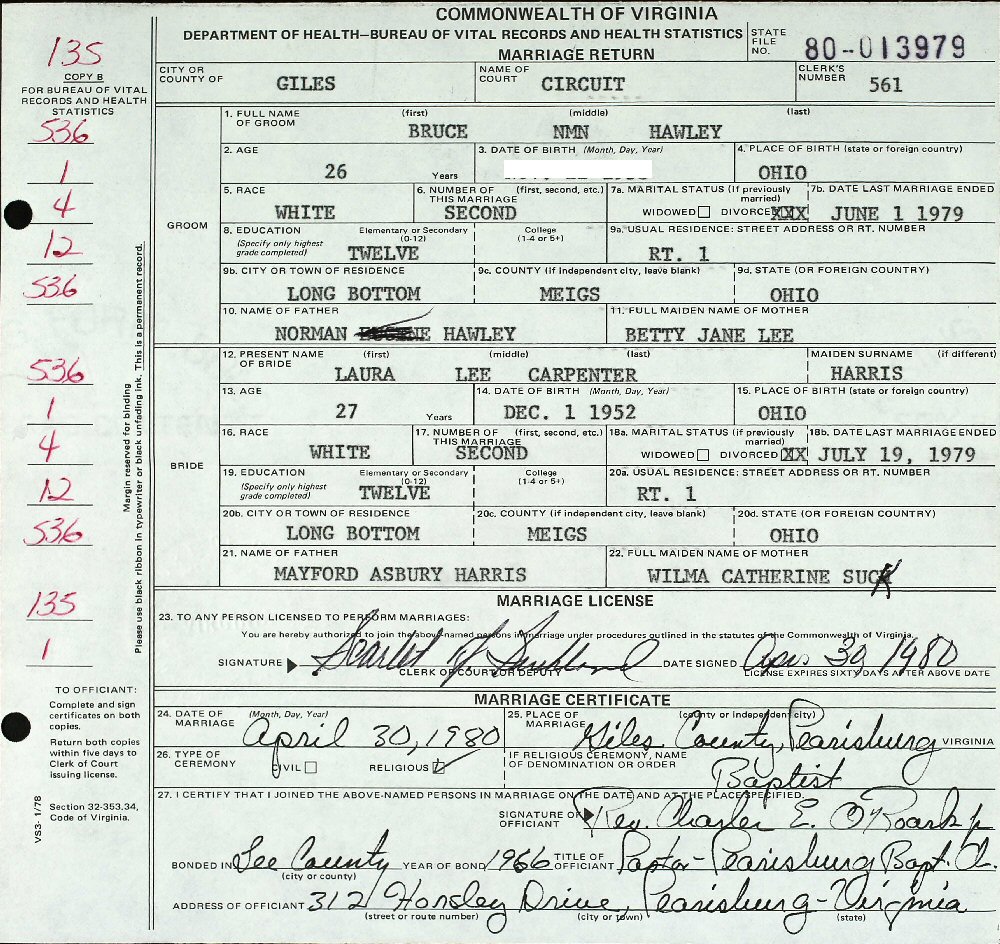 COMMONWEALTH OF VIRGINIA
DEPARTMENT OF HEALTH—BUREAU OF VITAL RECORDS AND HEALTH STATISTICS
MARRIAGE RETURN
STATE FILE NO. 80-013979
135
COPY B
FOR BUREAU OF VITAL RECORDS AND HEALTH STATISTICS
CITY OR COUNTY OF GILES NAME OF COURT CIRCUIT CLERK'S NUMBER 561
536
1. FULL NAME OF GROOM (first) (middle) (last)
BRUCE NMN HAWLEY
1
2. AGE 26 Years 3. DATE OF BIRTH (Month, Day, Year) 4. PLACE OF BIRTH (state or foreign country) OHIO
4
GROOM
5. RACE WHITE 6. NUMBER OF THIS MARRIAGE (first, second, etc.) SECOND 7a. MARITAL STATUS (If previously married) WIDOWED DIVORCED XXX 7b. DATE LAST MARRIAGE ENDED JUNE 1 1979
12
8. EDUCATION (Specify only highest grade completed) Elementary or Secondary (0-12) TWELVE College (1-4 or 5+) 9a. USUAL RESIDENCE: STREET ADDRESS OR RT. NUMBER RT. 1
536
9b. CITY OR TOWN OF RESIDENCE LONG BOTTOM 9c. COUNTY (if independent city, leave blank) MEIGS 9d. STATE (OR FOREIGN COUNTRY) OHIO
10. NAME OF FATHER NORMAN HAWLEY 11. FULL MAIDEN NAME OF MOTHER BETTY JANE LEE
536
12. PRESENT NAME OF BRIDE (first) (middle) (last) MAIDEN SURNAME (if different)
LAURA LEE CARPENTER HARRIS
1
13. AGE 27 Years 14. DATE OF BIRTH (Month, Day, Year) DEC. 1 1952 15. PLACE OF BIRTH (state or foreign country) OHIO
4
BRIDE
16. RACE WHITE 17. NUMBER OF THIS MARRIAGE (first, second, etc.) SECOND 18a. MARITAL STATUS (if previously married) WIDOWED DIVORCED XX 18b. DATE LAST MARRIAGE ENDED JULY 19, 1979
12
19. EDUCATION (Specify only highest grade completed) Elementary or Secondary (0-12) TWELVE College (1-4 or 5+) 20a. USUAL RESIDENCE: STREET ADDRESS OR RT. NUMBER RT. 1
536
20b. CITY OR TOWN OF RESIDENCE LONG BOTTOM 20c. COUNTY (if independent city, leave blank) MEIGS 20d. STATE (OR FOREIGN COUNTRY) OHIO
21. NAME OF FATHER MAYFORD ASBURY HARRIS 22. FULL MAIDEN NAME OF MOTHER WILMA CATHERINE SUCK
Margin reserved for binding
Please use black ribbon in typewriter or black unfading ink. This is a permanent record.
135
1
MARRIAGE LICENSE
23. TO ANY PERSON LICENSED TO PERFORM MARRIAGES:
You are hereby authorized to join the above-named persons in marriage under procedures outlined in the statutes of the Commonwealth of Virginia.
SIGNATURE DATE SIGNED Apr. 30, 1980
CLERK OF COURT OR DEPUTY LICENSE EXPIRES SIXTY DAYS AFTER ABOVE DATE
MARRIAGE CERTIFICATE
TO OFFICIANT:
Complete and sign certificates on both copies.
Return both copies within five days to Clerk of Court issuing license.
Section 32-353.34, Code of Virginia.
VS3- 1/78
24. DATE OF MARRIAGE (Month, Day, Year) April 30, 1980 25. PLACE OF MARRIAGE (county or independent city) Giles County, Pearisburg VIRGINIA
26. TYPE OF CEREMONY CIVIL RELIGIOUS IF RELIGIOUS CEREMONY, NAME OF DENOMINATION OR ORDER Baptist
27. I CERTIFY THAT I JOINED THE ABOVE-NAMED PERSONS IN MARRIAGE ON THE DATE AND AT THE PLACE SPECIFIED.
SIGNATURE OF OFFICIANT Rev. Charles E. O'Roark Jr
BONDED IN Lee County YEAR OF BOND 1966 TITLE OF OFFICIANT Pastor - Pearisburg Bapt. Ch.
(city or county)
ADDRESS OF OFFICIANT 312 Horsley Drive, Pearisburg - Virginia
(street or route number) (city or town) (state)